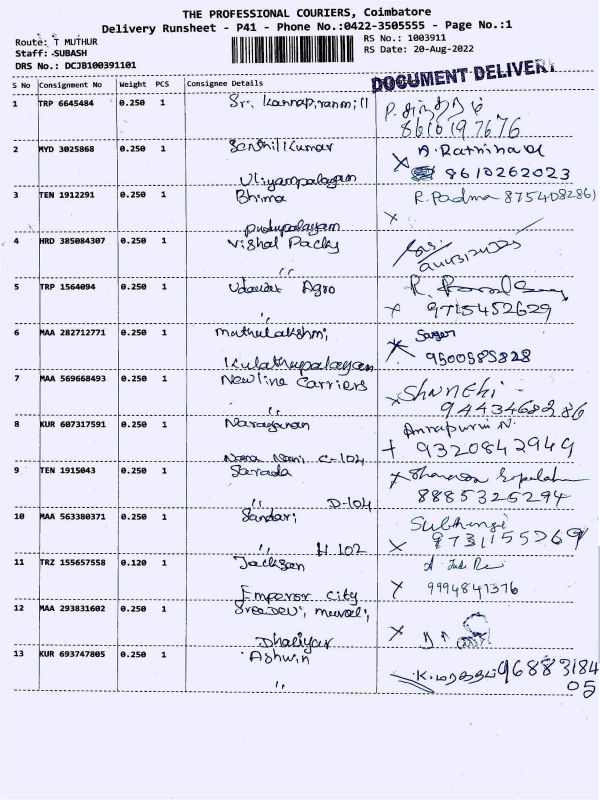 THE PROFESSIONAL COURIERS, Coimbatore
Delivery Runsheet - P41 - Phone No.:0422-3505555 - Page No.:1
Route: T MUTHUR
RS No.: 1003911
Staff: SUBASH
RS Date: 20-Aug-2022
DRS No.: DCJB100391101
DOCUMENT DELIVERY
S No Consignment No Weight PCS Consignee Details
1 TRP 6645484 0.250 1
8610197676
2 MYD 3025868 0.250 1 Senthil Kumar
Uliyampalayam 8610262023
3 TEN 1912291 0.250 1 Bhima R. Padma 8754082861
Pudupalayam x
4 HRD 385084307 0.250 1 Vishal Packs
"
5 TRP 1564094 0.250 1 Agro
" x 9715452629
6 MAA 282712771 0.250 1 Muthulakshmi,
Kulathupalayam 9500585828
7 MAA 569668493 0.250 1 Newline Carriers
9443468286
8 KUR 607317591 0.250 1 Narayanan
Nana Nani C-104 9320842949
9 TEN 1915043 0.250 1 Sarada
" D-104 8885325294
10 MAA 563380371 0.250 1
" H 102 x 9731155269
11 TRZ 155657558 0.120 1 Jackson
Emperor City x 9994841376
12 MAA 293831602 0.250 1 SreeDevi, murali,
Dhaliyur x
13 KUR 693747805 0.250 1 Ashwin 96883184
" 05